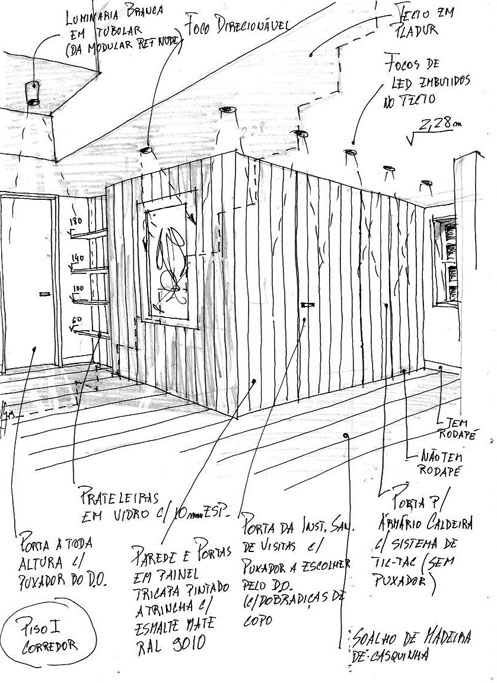 LUMINARIA BRANCA
EM TUBOLAR
(DA MODULAR REF NUDE)
FOCO DIRECIONÁVEL
TECTO EM
PLADUR
FOCOS DE
LED EMBUTIDOS
NO TECTO
2,28m
180
140
100
60
TEM
RODAPÉ
NÃO TEM
RODAPÉ
PRATELEIRAS
EM VIDRO C/ 10mm ESP.
PORTA A TODA
ALTURA C/
PUXADOR DO D.O.
PAREDE E PORTAS
EM PAINEL
TRICAPA PINTADO
A TRINCHA C/
ESMALTE MATE
RAL 9010
PORTA DA INST. SAN.
DE VISITAS C/
PUXADOR A ESCOLHER
PELO D.O.
C/DOBRADIÇAS DE
COPO
PORTA P/
ARMÁRIO CALDEIRA
C/ SISTEMA DE
TIC-TAC (SEM
PUXADOR)
PISO I
CORREDOR
SOALHO DE MADEIRA
DE CASQUINHA